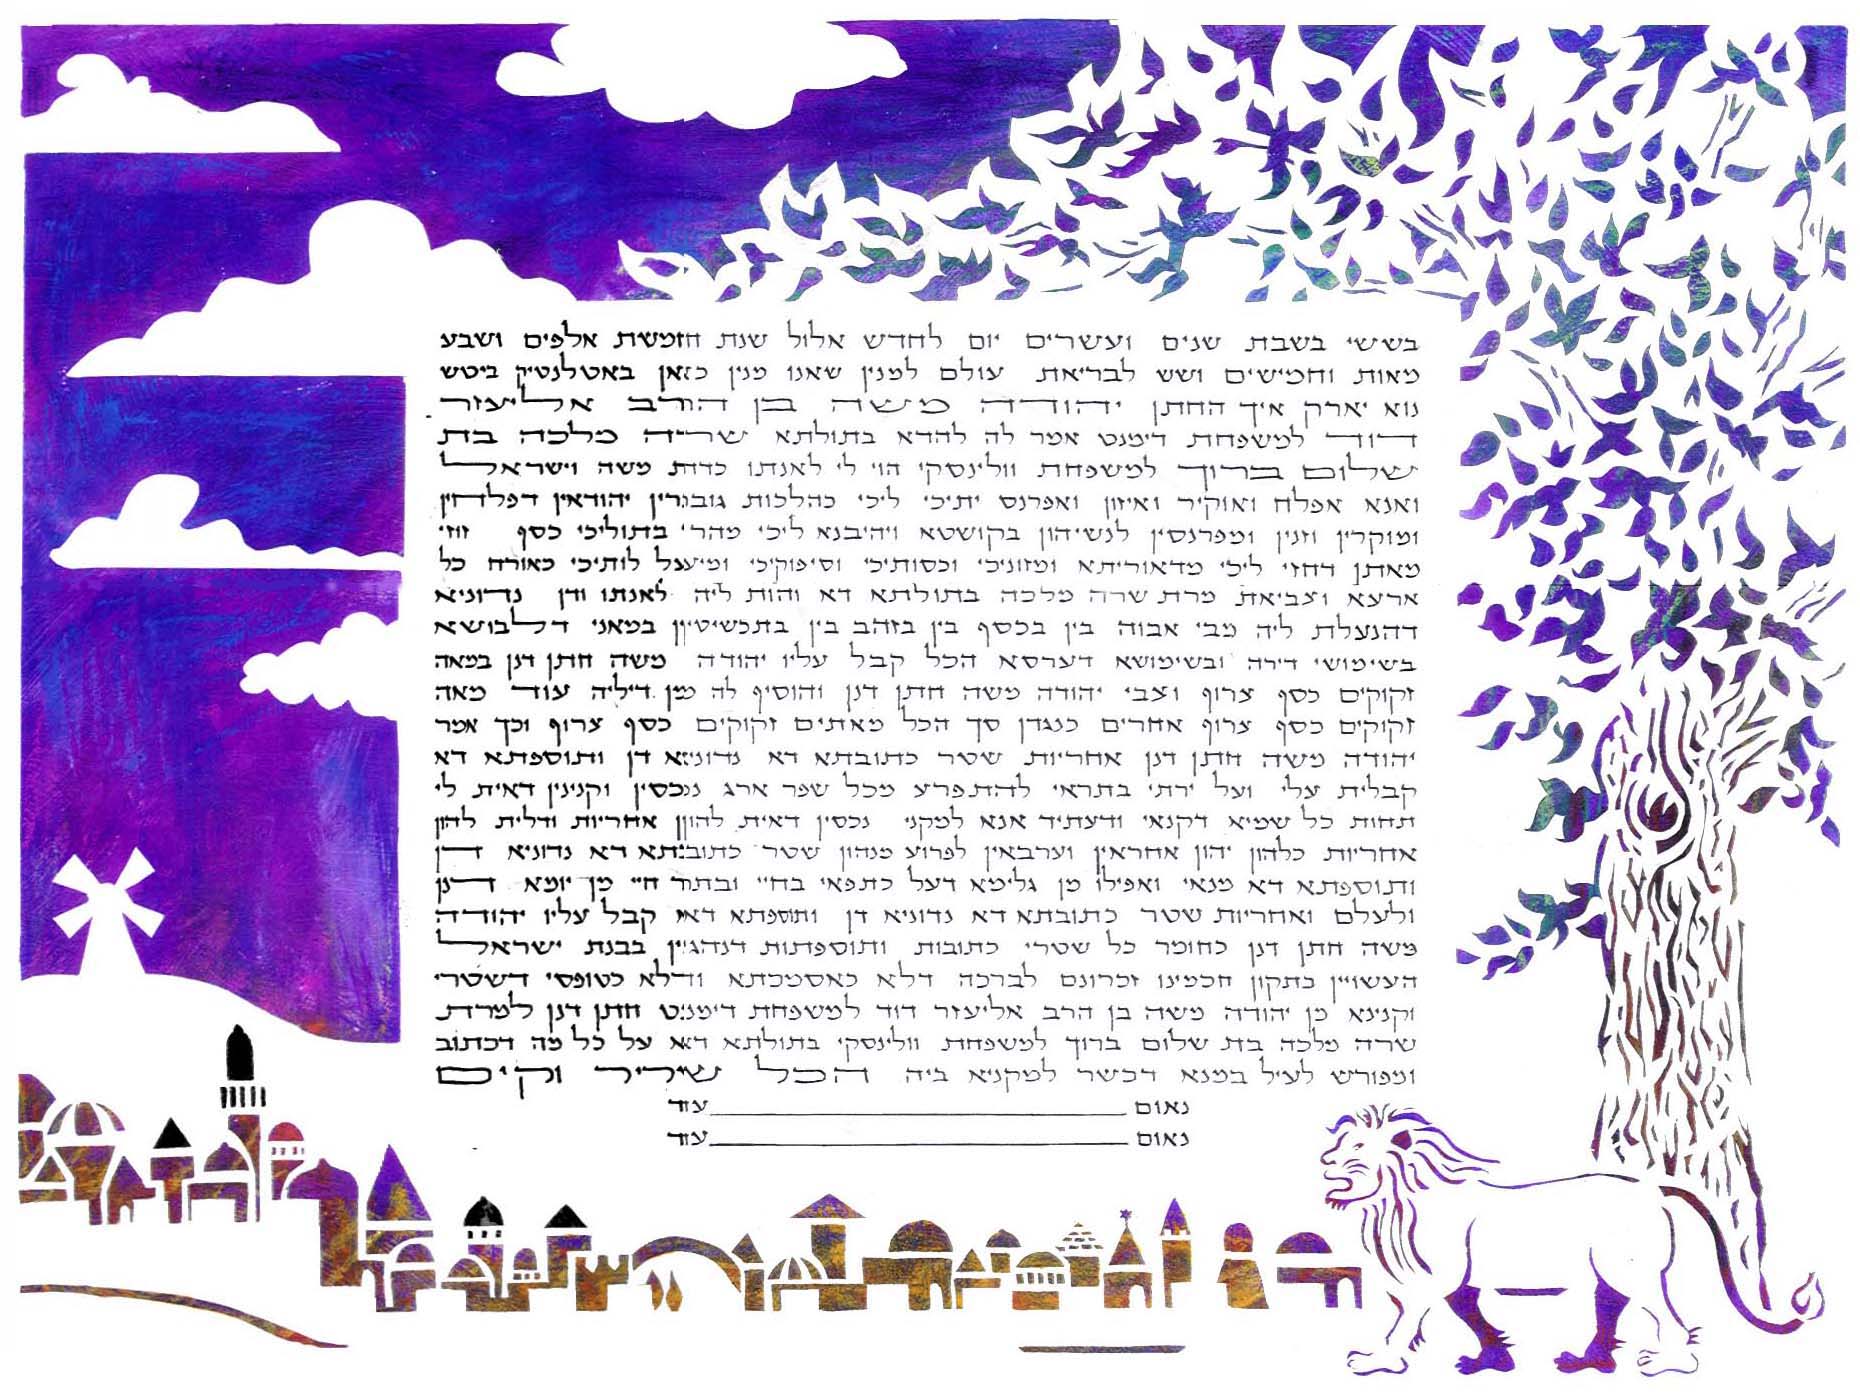 בששי בשבת שנים ועשרים יום לחדש אלול שנת חזמשת אלפים ושבע
מאות וחמישים ושש לבריאת עולם למנין שאנו מנין כזאן באטלנטיק ביטש
נוא יארק איך החתן יהודה משה בן הרב אליעזר
דוד למשפחת דימנט אמר לה להדא בתולתא שרה מלכה בת
שלום ברוך למשפחת וולינסקי הוי לי לאנתו כדת משה וישראל
ואנא אפלח ואוקיר ואיזון ואפרנס יתיכי ליכי כהלכות גוברין יהודאין דפלחין
ומוקרין וזנין ומפרנסין לנשיהון בקושטא ויהיבנא ליכי מהרי בתוליכי כסף זוזי
מאתן דחזי ליכי מדאוריתא ומזוניכי וכסותיכי וסיפוקיכי ומיעל לותיכי כאורח כל
ארעא וצביאת מרת שרה מלכה בתולתא דא והות ליה לאנתו ודן נדוניא
דהנעלת ליה מבי אבוה בין בכסף בין בזהב בין בתכשיטין במאני דלבושא
בשימושי דירה ובשימושא דערסא הכל קבל עליו יהודה משה חתן דנן במאה
זקוקים כסף צרוף וצבי יהודה משה חתן דנן והוסיף לה מן דיליה עוד מאה
זקוקים כסף צרוף אחרים כנגדן סך הכל מאתים זקוקים כסף צרוף וכך אמר
יהודה משה חתן דנן אחריות שטר כתובתא דא נדוניא דן ותוספתא דא
קבלית עלי ועל ירתי בתראי להתפרע מכל שפר ארג נכסין וקנינין דאית לי
תחות כל שמיא דקנאי ודעתיד אנא למקני נכסין דאית להון אחריות ודלית להון
אחריות כלהון יהון אחראין וערבאין לפרוע מנהון שטר כתובתא דא נדוניא דן
ותוספתא דא מנאי ואפילו מן גלימא דעל כתפאי בחיי ובתר חיי מן יומא דנן
ולעלם ואחריות שטר כתובתא דא נדוניא דן ותוספתא דא קבל עליו יהודה
משה חתן דנן כחומר כל שטרי כתובות ותוספתות דנהגין בבנת ישראל
העשויין כתקון חכמינו זכרונם לברכה דלא כאסמכתא ודלא כטופסי דשטרי
וקנינא מן יהודה משה בן הרב אליעזר דוד למשפחת דימנט חתן דנן למרת
שרה מלכה בת שלום ברוך למשפחת וולינסקי בתולתא דא על כל מה דכתוב
ומפורש לעיל במנא דכשר למקניא ביה הכל שריר וקים
נאום ____________ עד
נאום ____________ עד